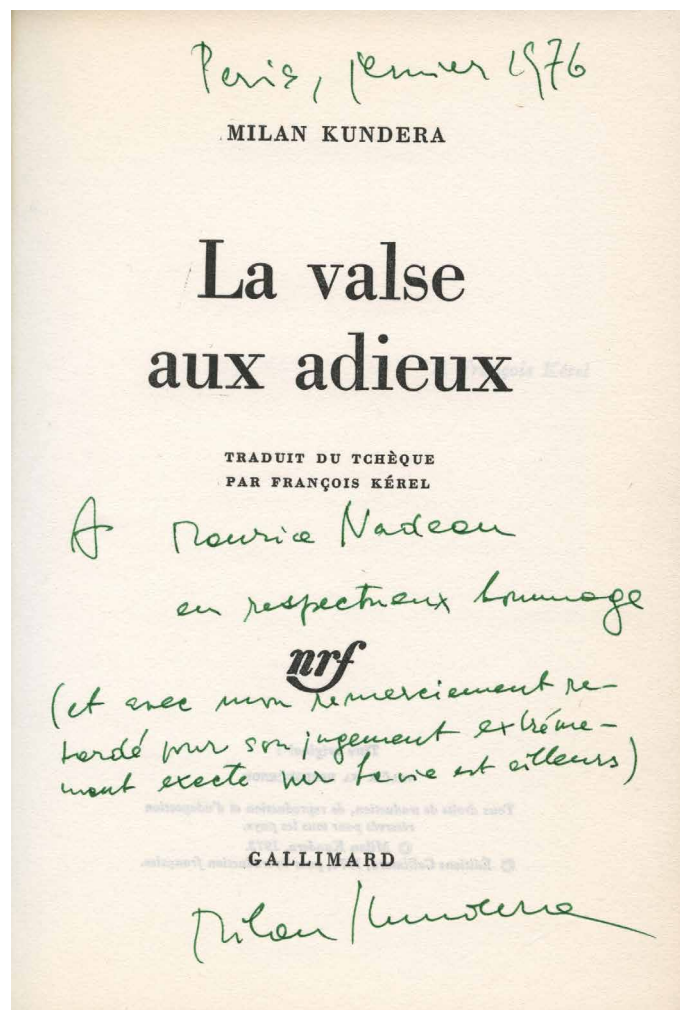 Paris, janvier 1976
MILAN KUNDERA
La valse
aux adieux
TRADUIT DU TCHÈQUE
PAR FRANÇOIS KÉREL
A Maurice Nadeau
en respectueux hommage
nrf
(et avec mon remerciement re-
tardé pour son jugement extrême-
ment exacte sur La vie est ailleurs)
GALLIMARD
Milan Kundera